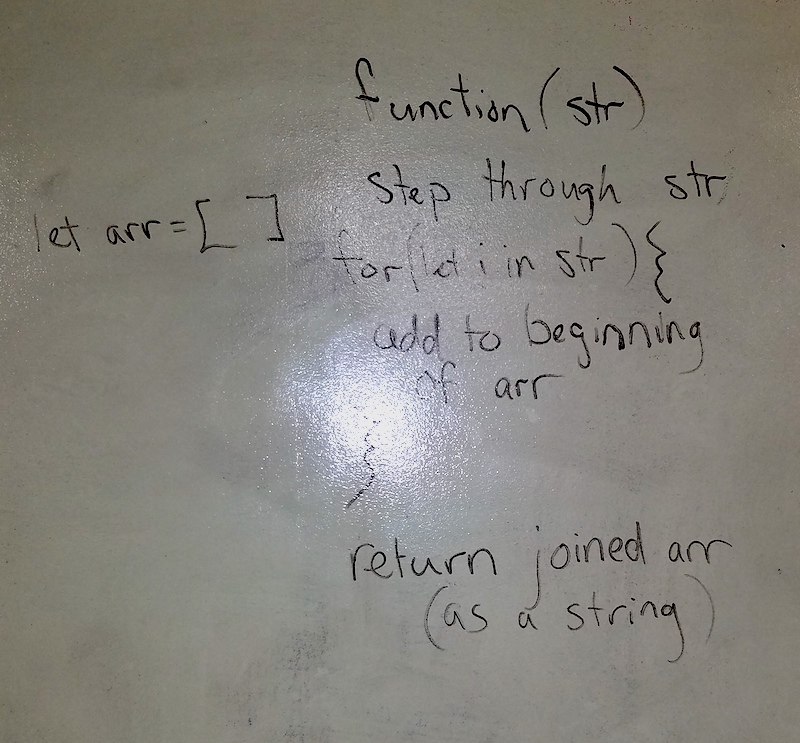 function(str)
step through str
let arr = [ ]
for(let i in str){
add to beginning
of arr
}
return joined arr
(as a string)